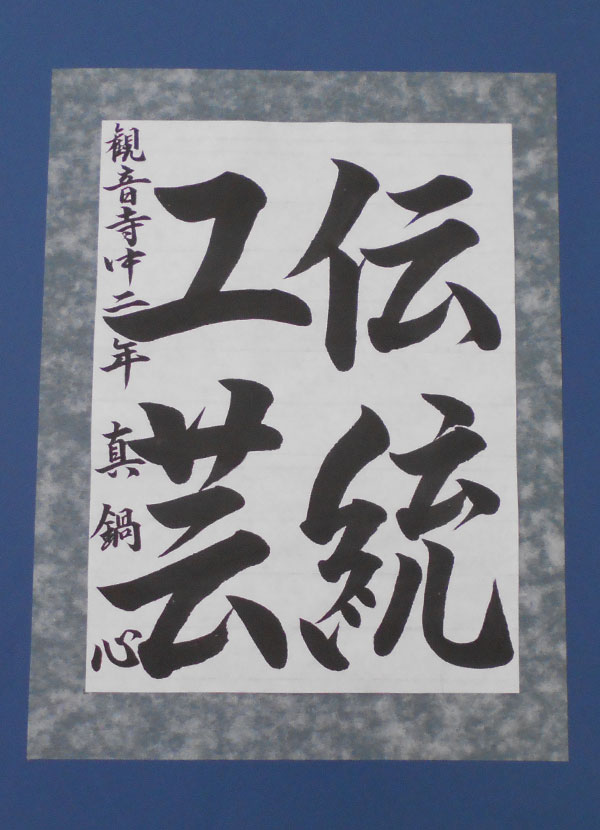 伝統
工芸
観音寺中二年 真鍋 心